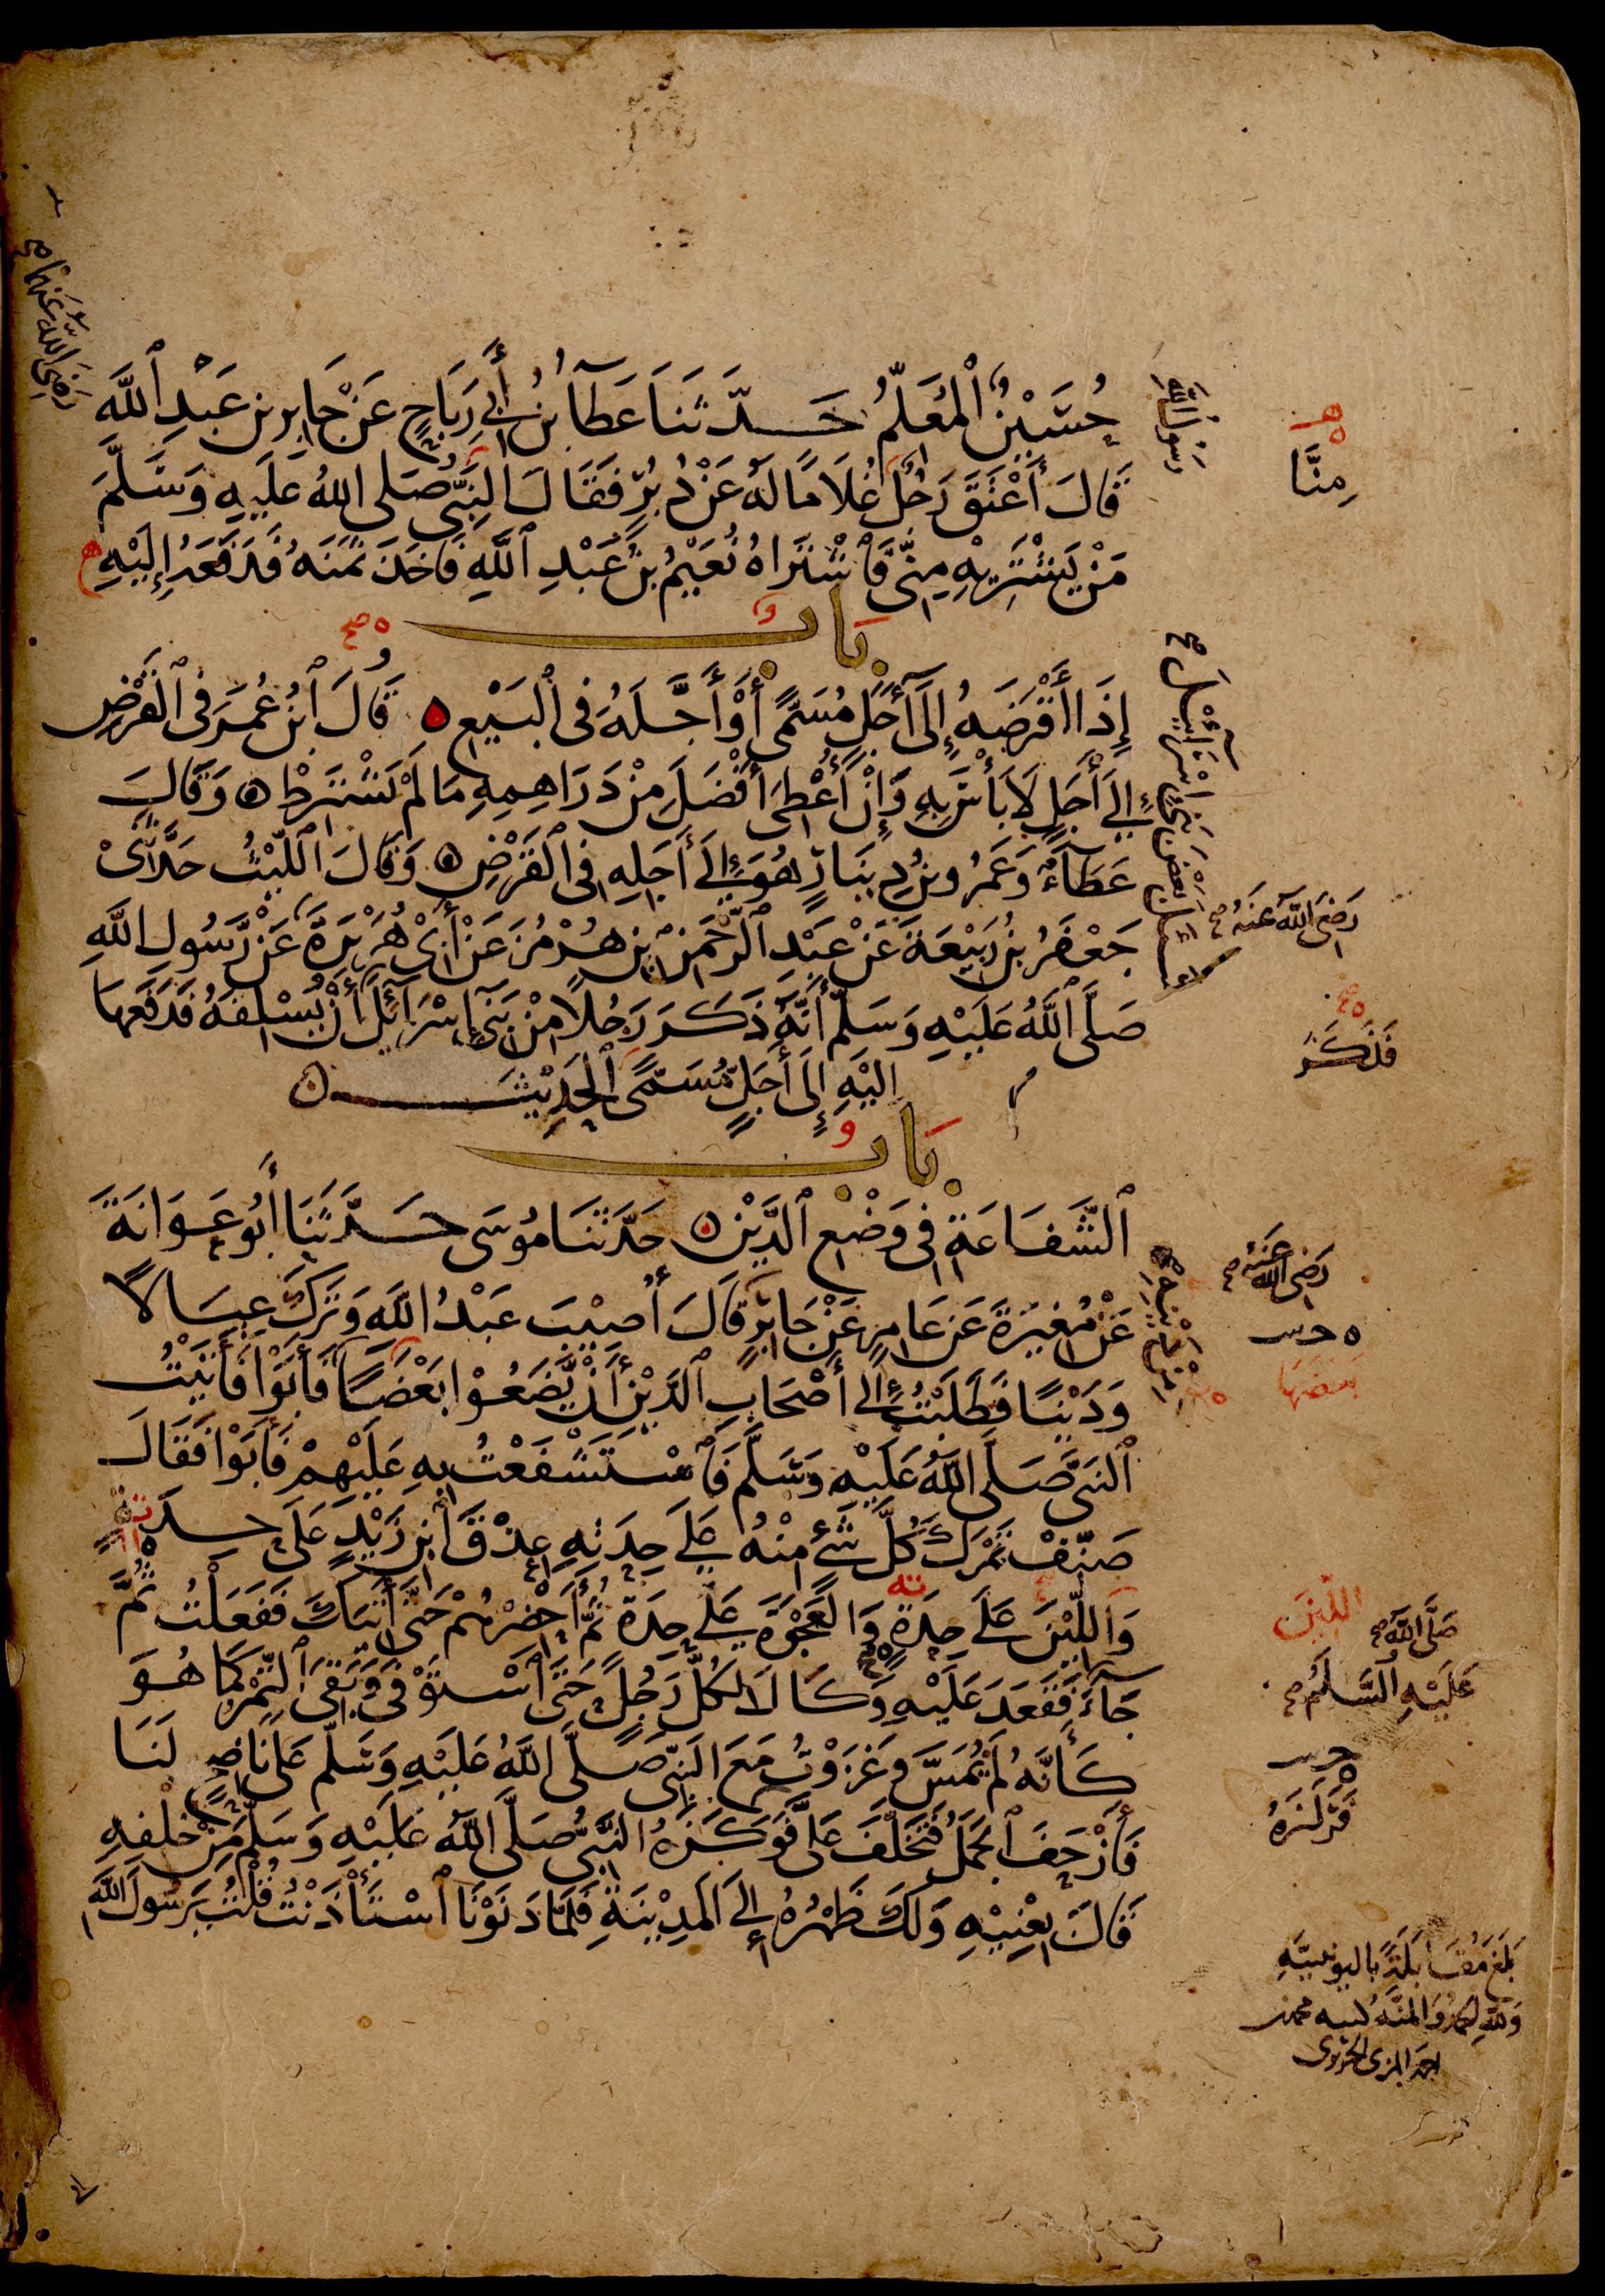 حُسَيْنٌ ٱلْمُعَلِّمُ حَدَّثَنَا عَطَآءُ بْنُ أَبِي رَبَاحٍ عَنْ جَابِرِ بْنِ عَبْدِ ٱللَّهِ
قَالَ أَعْتَقَ رَجُلٌ غُلَامًا لَهُ عَنْ دُبُرٍ فَقَالَ النَّبِيُّ صَلَّى اللهُ عَلَيْهِ وَسَلَّمَ
مَنْ يَشْتَرِيْهِ مِنِّي فَٱشْتَرَاهُ نُعَيْمُ بْنُ عَبْدِ ٱللَّهِ فَأَخَذَ ثَمَنَهُ فَدَفَعَهُ إِلَيْهِ
بَابٌ
إِذَا أَقْرَضَهُ إِلَى أَجَلٍ مُسَمًّى أَوْ أَجَّلَهُ فِي ٱلْبَيْعِ ۝ قَالَ ٱبْنُ عُمَرَ فِي ٱلْقَرْضِ
إِلَى أَجَلٍ لَا بَأْسَ بِهِ وَإِنْ أُعْطِيَ أَفْضَلَ مِنْ دَرَاهِمِهِ مَا لَمْ يَشْتَرِطْ ۝ وَقَالَ
عَطَآءٌ وَعَمْرُو بْنُ دِيْنَارٍ هُوَ إِلَى أَجَلِهِ فِي ٱلْقَرْضِ ۝ وَقَالَ ٱللَّيْثُ حَدَّثَنِي
جَعْفَرُ بْنُ رَبِيْعَةَ عَنْ عَبْدِ ٱلرَّحْمَنِ بْنِ هُرْمُزَ عَنْ أَبِي هُرَيْرَةَ عَنْ رَسُولِ اللَّهِ
صَلَّى ٱللَّهُ عَلَيْهِ وَسَلَّمَ أَنَّهُ ذَكَرَ رَجُلًا مِنْ بَنِي إِسْرَآئِلَ أَنْ يُسْلِفَهُ فَدَفَعَهَا
إِلَيْهِ إِلَى أَجَلٍ مُسَمًّى ٱلْحَدِيْثَ ۝
بَابُ
ٱلشَّفَاعَةِ فِي وَضْعِ ٱلدَّيْنِ ۝ حَدَّثَنَا مُوسَى حَدَّثَنَا أَبُو عَوَانَةَ
عَنْ مُغِيْرَةَ عَنْ عَامِرٍ عَنْ جَابِرٍ قَالَ أُصِيْبَ عَبْدُ اللَّهِ وَتَرَكَ عِيَالًا
وَدَيْنًا فَطَلَبْتُ إِلَى أَصْحَابِ ٱلدَّيْنِ أَنْ يَّضَعُوْا بَعْضًا فَأَبَوْا فَأَتَيْتُ
ٱلنَّبِيَّ صَلَّى ٱللَّهُ عَلَيْهِ وَسَلَّمَ فَٱسْتَشْفَعْتُ بِهِ عَلَيْهِمْ فَأَبَوْا فَقَالَ
صَنِّفْ تَمْرَكَ كُلَّ شَيْءٍ مِنْهُ عَلَى حِدَتِهِ عِذْقَ ٱبْنِ زَيْدٍ عَلَى حِدَةٍ
وَاللِّيْنَ عَلَى حِدَةٍ وَالْعَجْوَةَ عَلَى حِدَةٍ ثُمَّ أَحْضِرْهُمْ حَتَّى أٰتِيَكَ فَفَعَلْتُ ثُمَّ
جَآءَ فَقَعَدَ عَلَيْهِ وَكَالَ لِكُلِّ رَجُلٍ حَتَّى ٱسْتَوْفَى وَبَقِيَ ٱلتَّمْرُ كَمَا هُوَ
كَأَنَّهُ لَمْ يُمَسَّ وَغَزَوْتُ مَعَ النَّبِيِّ صَلَّى ٱللَّهُ عَلَيْهِ وَسَلَّمَ عَلَى نَاضِحٍ لَنَا
فَأَزْحَفَ ٱلْجَمَلُ فَتَخَلَّفَ عَلَيَّ فَوَكَزَهُ النَّبِيُّ صَلَّى ٱللَّهُ عَلَيْهِ وَسَلَّمَ مِنْ خَلْفِهِ
قَالَ بِعْنِيْهِ وَلَكَ ظَهْرُهُ إِلَى الْمَدِيْنَةِ فَلَمَّا دَنَوْنَا ٱسْتَأْذَنْتُ قُلْتُ يٰرَسُولَ اللَّهِ
رَضِيَ اللَّهُ عَنْهُمَا
رَسُولُ اللَّهِ
مِنَّا
رَضِيَ اللَّهُ عَنْهُ
فَذَكَرَ
رَضِيَ اللَّهُ عَنْهُ
بَعْضَهَا
اللِّيْنَ
صَلَّى اللَّهُ
عَلَيْهِ ٱلسَّلَامُ
فَزَكَزَهُ
بَلَغَ مُقَابَلَةً بِاليونينيّة
وَلِلَّهِ الحَمْدُ وَالمِنَّةُ كتبه محمد